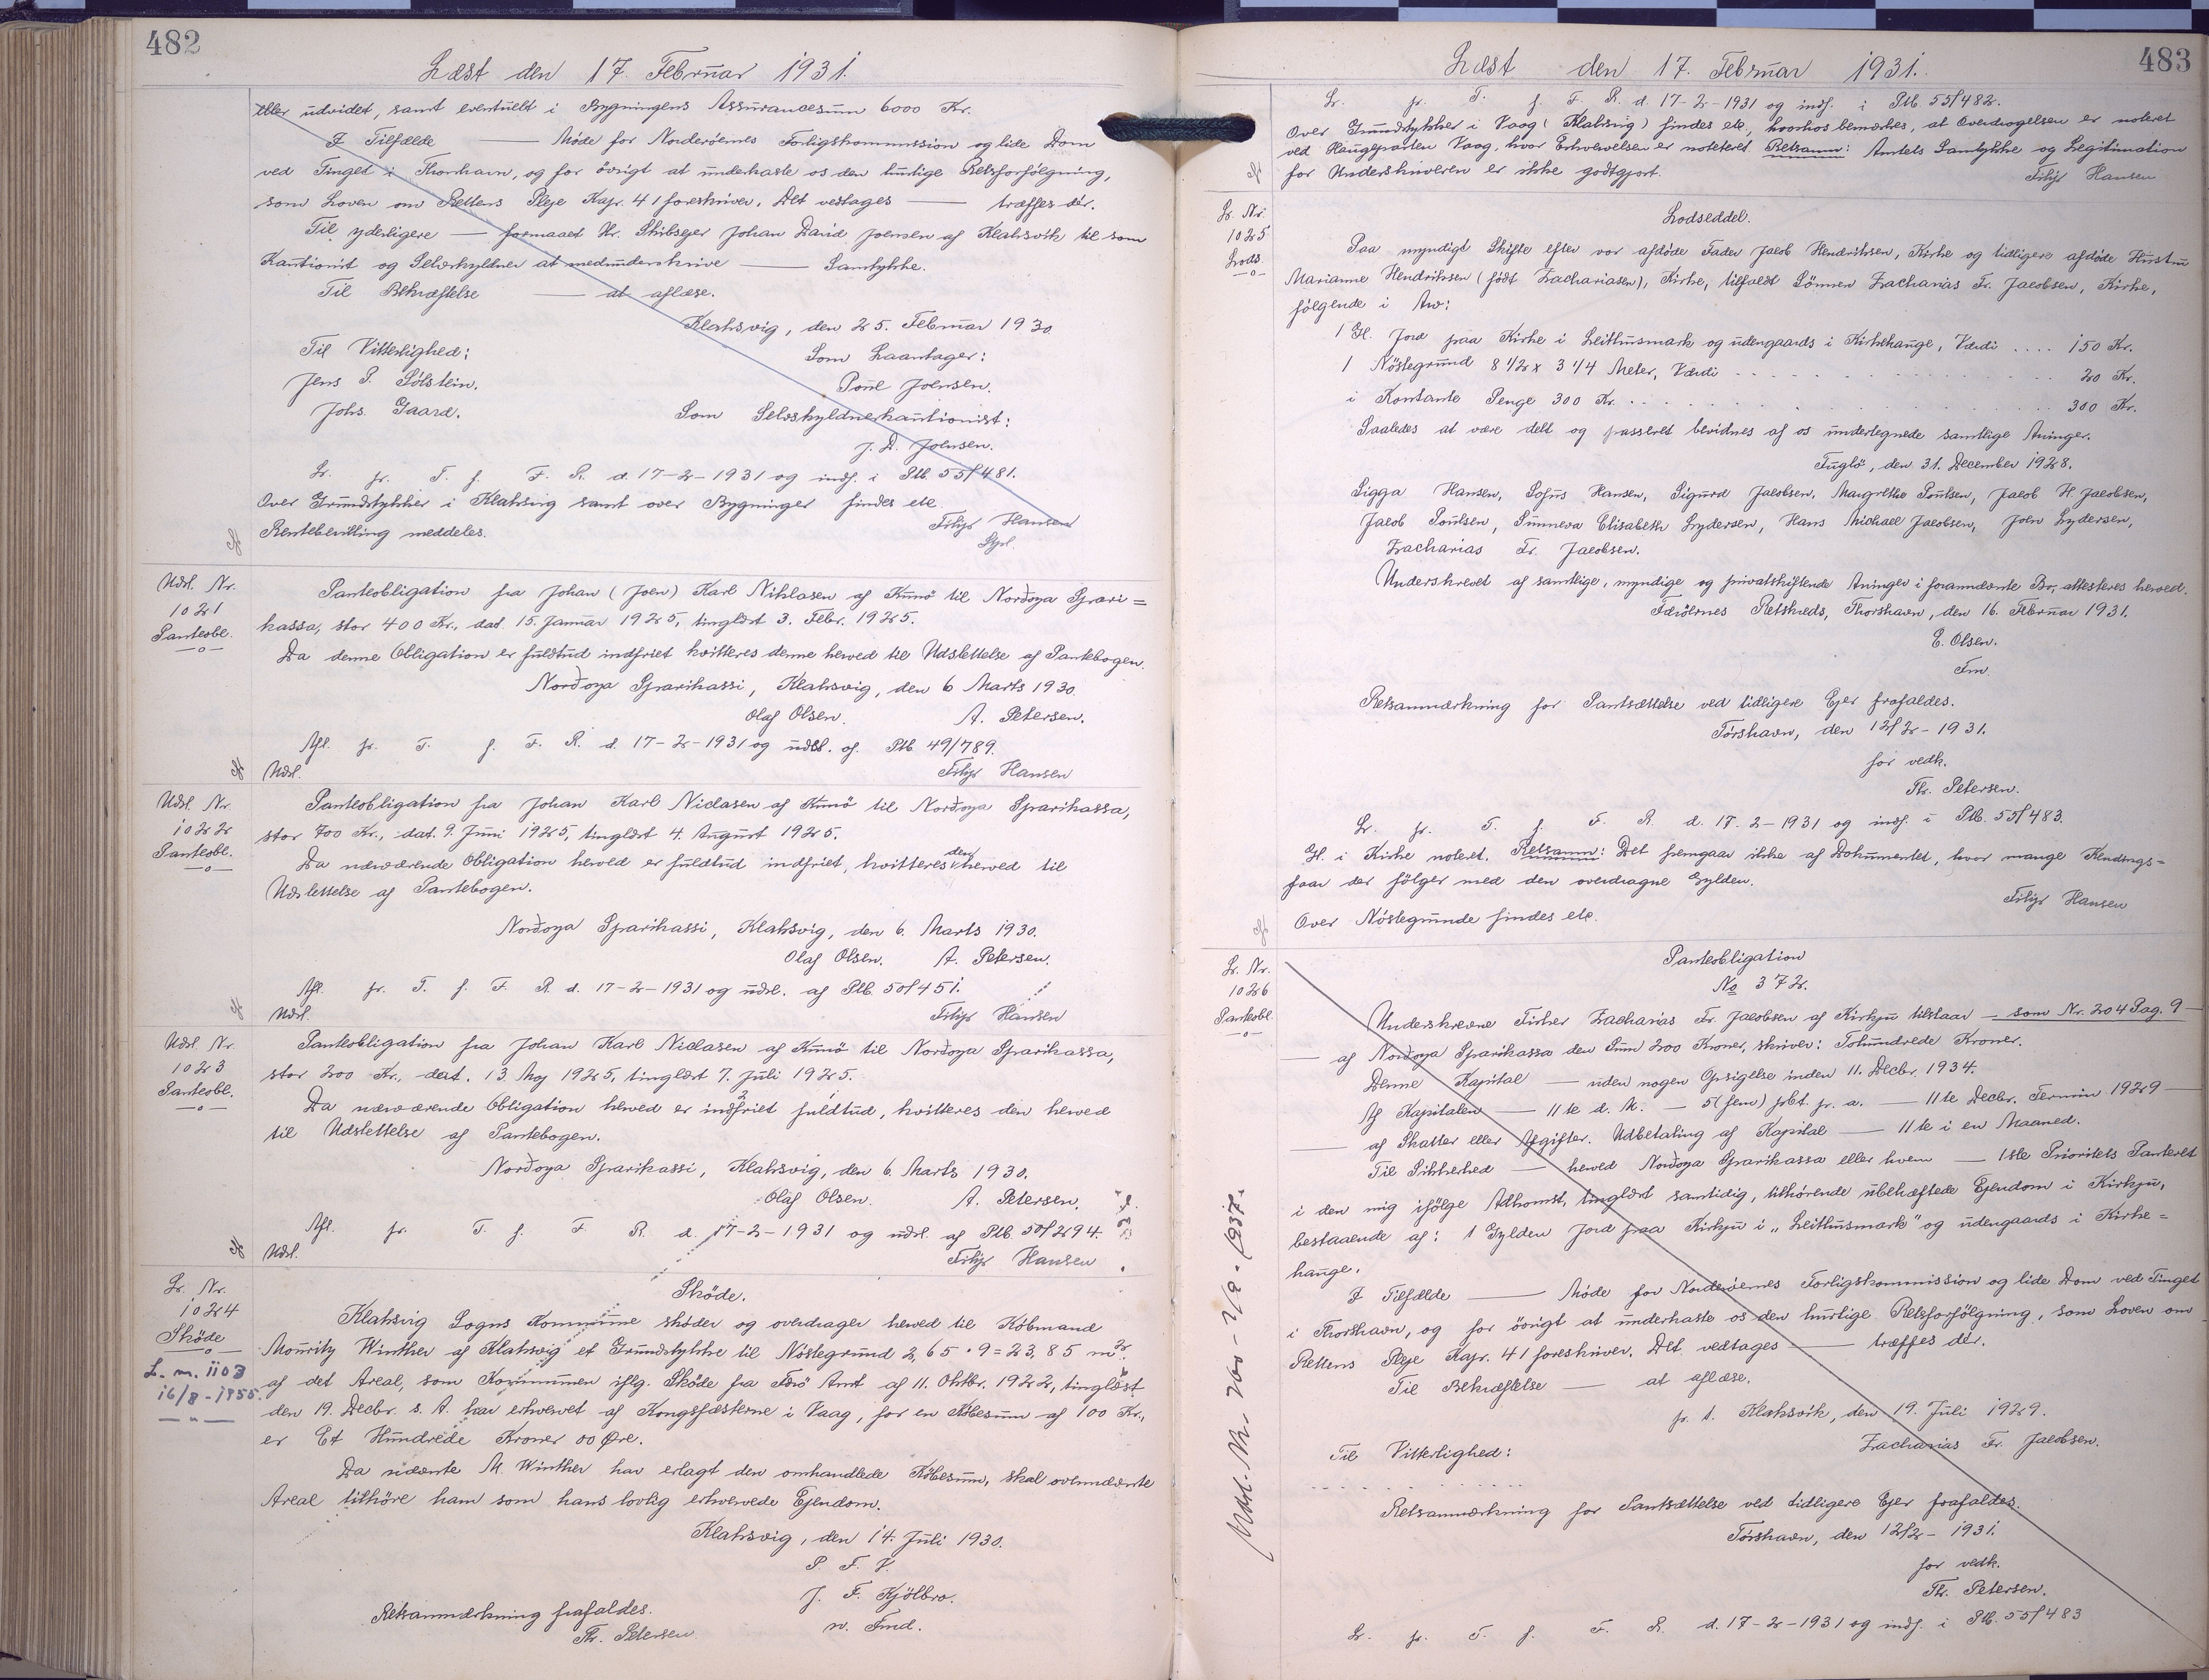 482
Læst den 17. Februar 1931.
eller udvidet, samt eventuelt i Bygningens Assurancesum 6000 Kr.
I Tilfælde — Møde for Norderöernes Forligskommission og lide Dom
ved Tinget i Thorshavn, og for övrigt at underkaste os den hurtige Retsforfölgning,
som Loven om Rettens Pleje Kap. 41 foreskriver. Det vedtages — træffes dér.
Til yderligere — formaaet Hr. Skibsejer Johan David Joensen af Klaksvik til som
Kautionist og Selvskyldner at medunderskrive — Samtykke.
Til Bekræftelse — at aflæse.
Klaksvig, den 25. Februar 1930
Til Vitterlighed: Som Laantager:
Jens P. Sólstein. Poul Joensen.
Johs. Gaard. Som Selvskyldnerkautionist:
J. D. Joensen.
Lr. pr. T. f. F. R. d. 17-2-1931 og indf. i Ptb. 55/481.
Over Grundstykker i Klaksvig samt over Bygninger findes etc
Rentebevilling meddeles. Filip Hansen
Spl.
Udsl. Nr.
1021
Panteobl.
Panteobligation fra Johan (Joen) Karl Niklasen af Kunö til Norðoya Spari=
kassa, stor 400 Kr., dat. 15. Januar 1925, tinglæst 3. Febr. 1925.
Da denne Obligation er fuldtud indfriet kvitteres denne herved til Udslettelse af Pantebogen.
Norðoya Sparikassi, Klaksvig, den 6 Marts 1930.
Olaf Olsen. A. Petersen.
Afl. pr. T. f. F. R. d. 17-2-1931 og udsl. af Ptb 49/789.
Udsl. Filip Hansen
Udsl. Nr.
1022
Panteobl.
Panteobligation fra Johan Karl Niclasen af Kunö til Norðoya Sparikassa,
stor 700 Kr., dat. 9. Juni 1925, tinglæst 4. August 1925.
Da nærværende Obligation herved er fuldtud indfriet, kvitteres den herved til
Udslettelse af Pantebogen.
Norðoya Sparikassi, Klaksvig, den 6. Marts 1930.
Olaf Olsen. A. Petersen.
Afl. pr. T. f. F. R. d. 17-2-1931 og udsl. af Ptb. 50/451.
Udsl. Filip Hansen
Udsl. Nr.
1023
Panteobl.
Panteobligation fra Johan Karl Niclasen af Kunö til Norðoya Sparikassa,
stor 200 Kr., dat. 13. Maj 1925, tinglæst 7. Juli 1925.
Da nærværende Obligation herved er indfriet fuldtud, kvitteres den herved
til Udslettelse af Pantebogen.
Norðoya Sparikassi, Klaksvig, den 6. Marts 1930.
Olaf Olsen. A. Petersen.
Afl. pr. T. f. F. R. d. 17-2-1931 og udsl. af Ptb. 50/294.
Udsl. Filip Hansen
Lr. Nr.
1024
Sköde
L. m. 1103
16/8-1955.
Sköde.
Klaksvig Sogns Kommune sköder og overdrager herved til Köbmand
Mouritz Winther af Klaksvig et Grundstykke til Nöstegrund 2,65 · 9 = 23,85 m²
af det Areal, som Kommunen iflg. Sköde fra Færö Amt af 11. Oktbr. 1922, tinglæst
den 19. Decbr. s. A. har erhvervet af Kongsfæsterne i Vaag, for en Købesum af 100 Kr.,
er Et Hundrede Kroner 00 Øre.
Da nævnte M. Winther har erlagt den omhandlede Købesum, skal ovennævnte
Areal tilhöre ham som hans lovlig erhvervede Ejendom.
Klaksvig, den 14. Juli 1930.
P. F. V.
J. F. Kjölbro.
Retsanmærkning frafaldes. n. Fmd.
Th. Petersen
483
Læst den 17. Februar 1931.
Lr. pr. T. f. F. R. d. 17-2-1931 og indf. i Ptb. 55/482.
Over Grundstykker i Vaag (Klaksvig) findes etc, hvorhos bemærkes, at Overdragelsen er noteret
ved Haugeparten Vaag, hvor Erhvervelsen er noteteret Retsanm: Amtets Samtykke og Legitimation
for Underskriveren er ikke godtgjort. Filip Hansen
Lr. Nr.
1025
Lods.
Lodseddel.
Paa myndigt Skifte efter vor afdöde Fader Jacob Hendriksen, Kirke og tidligere afdöde Hustru
Marianne Hendriksen (födt Zachariasen), Kirke, tilfaldt Sönnen Zacharias Fr. Jacobsen, Kirke,
fölgende i Arv:
1 Gl. Jord paa Kirke i Leithusmark og udengaards i Kirkehauge, Værdi .... 150 Kr.
1 Nöstegrund 8 1/2 x 3 1/4 Meter, Værdi . . . . 20 Kr.
i Kontante Penge 300 Kr. . . . . 300 Kr.
Saaledes at være delt og passeret bevidnes af os undertegnede samtlige Arvinger.
Fuglö, den 31. December 1928.
Sigga Hansen, Sofus Hansen, Sigurd Jacobsen, Margrethe Poulsen, Jacob H. Jacobsen,
Jacob Poulsen, Sunneva Elisabeth Lydersen, Hans Michael Jacobsen, Joen Lydersen,
Zacharias Fr. Jacobsen.
Underskrevet af samtlige, myndige og privatskiftende Arvinger i forannævnte Bo, attesteres herved.
Færöernes Retskreds, Thorshavn, den 16. Februar 1931.
E. Olsen.
Fm.
Retsanmærkning for Pantsættelse ved tidligere Ejer frafaldes.
Tórshavn, den 12/2-1931.
for vedk.
Th. Petersen.
Lr. pr. T. f. F. R. d. 17. 2-1931 og indf. i Ptb. 55/483.
Gl. i Kirke noteret. Retsanm: Det fremgaar ikke af Dokumentet, hvor mange Kendings-
faar der fölger med den overdragne Gylden.
Filip Hansen
Over Nöstegrunde findes etc.
Lr. Nr.
1026
Panteobl.
Udsl. Nr. 200 - 2/2-1937.
Panteobligation
No 372.
Underskrevne Fisker Zacharias Fr. Jacobsen af Kirkju tilstaar — som Nr. 204 Pag. 9 —
— af Norðoya Sparikassa den Sum 200 Kroner, skriver: Tohundrede Kroner.
Denne Kapital — uden nogen Opsigelse inden 11. Decbr. 1934.
Af Kapitalen — 11te d. M. — 5 (fem) pCt p. a. — 11te Decbr. Termin 1929 —
— af Skatter eller Afgifter. Udbetaling af Kapital — 11te i en Maaned.
Til Sikkerhed — herved Norðoya Sparikassa eller hvem — 1ste Prioritets Panteret
i den mig ifölge Adkomst, tinglæst samtidig, tilhörende ubehæftede Ejendom i Kirkju,
bestaaende af: 1 Gylden Jord paa Kirkju i „Leithusmark" og udengaards i Kirke=
hauge.
I Tilfælde — Møde for Norderöernes Forligskommission og lide Dom ved Tinget
i Thorshavn, og for övrigt at underkaste os den hurtige Retsforfölgning, som Loven om
Rettens Pleje Kap. 41 foreskriver. Det vedtages — træffes dér.
Til Bekræftelse — at aflæse.
p. t. Klaksvik, den 19. Juli 1929.
Til Vitterlighed: Zacharias Fr. Jacobsen.
. . . . . . . . . .
Retsanmærkning for Pantsættelse ved tidligere Ejer frafaldes.
Tórshavn, den 12/2-1931.
for vedk.
Th. Petersen.
Lr. pr. T. f. F. R. d. 17-2-1931 og indf. i Ptb. 55/483